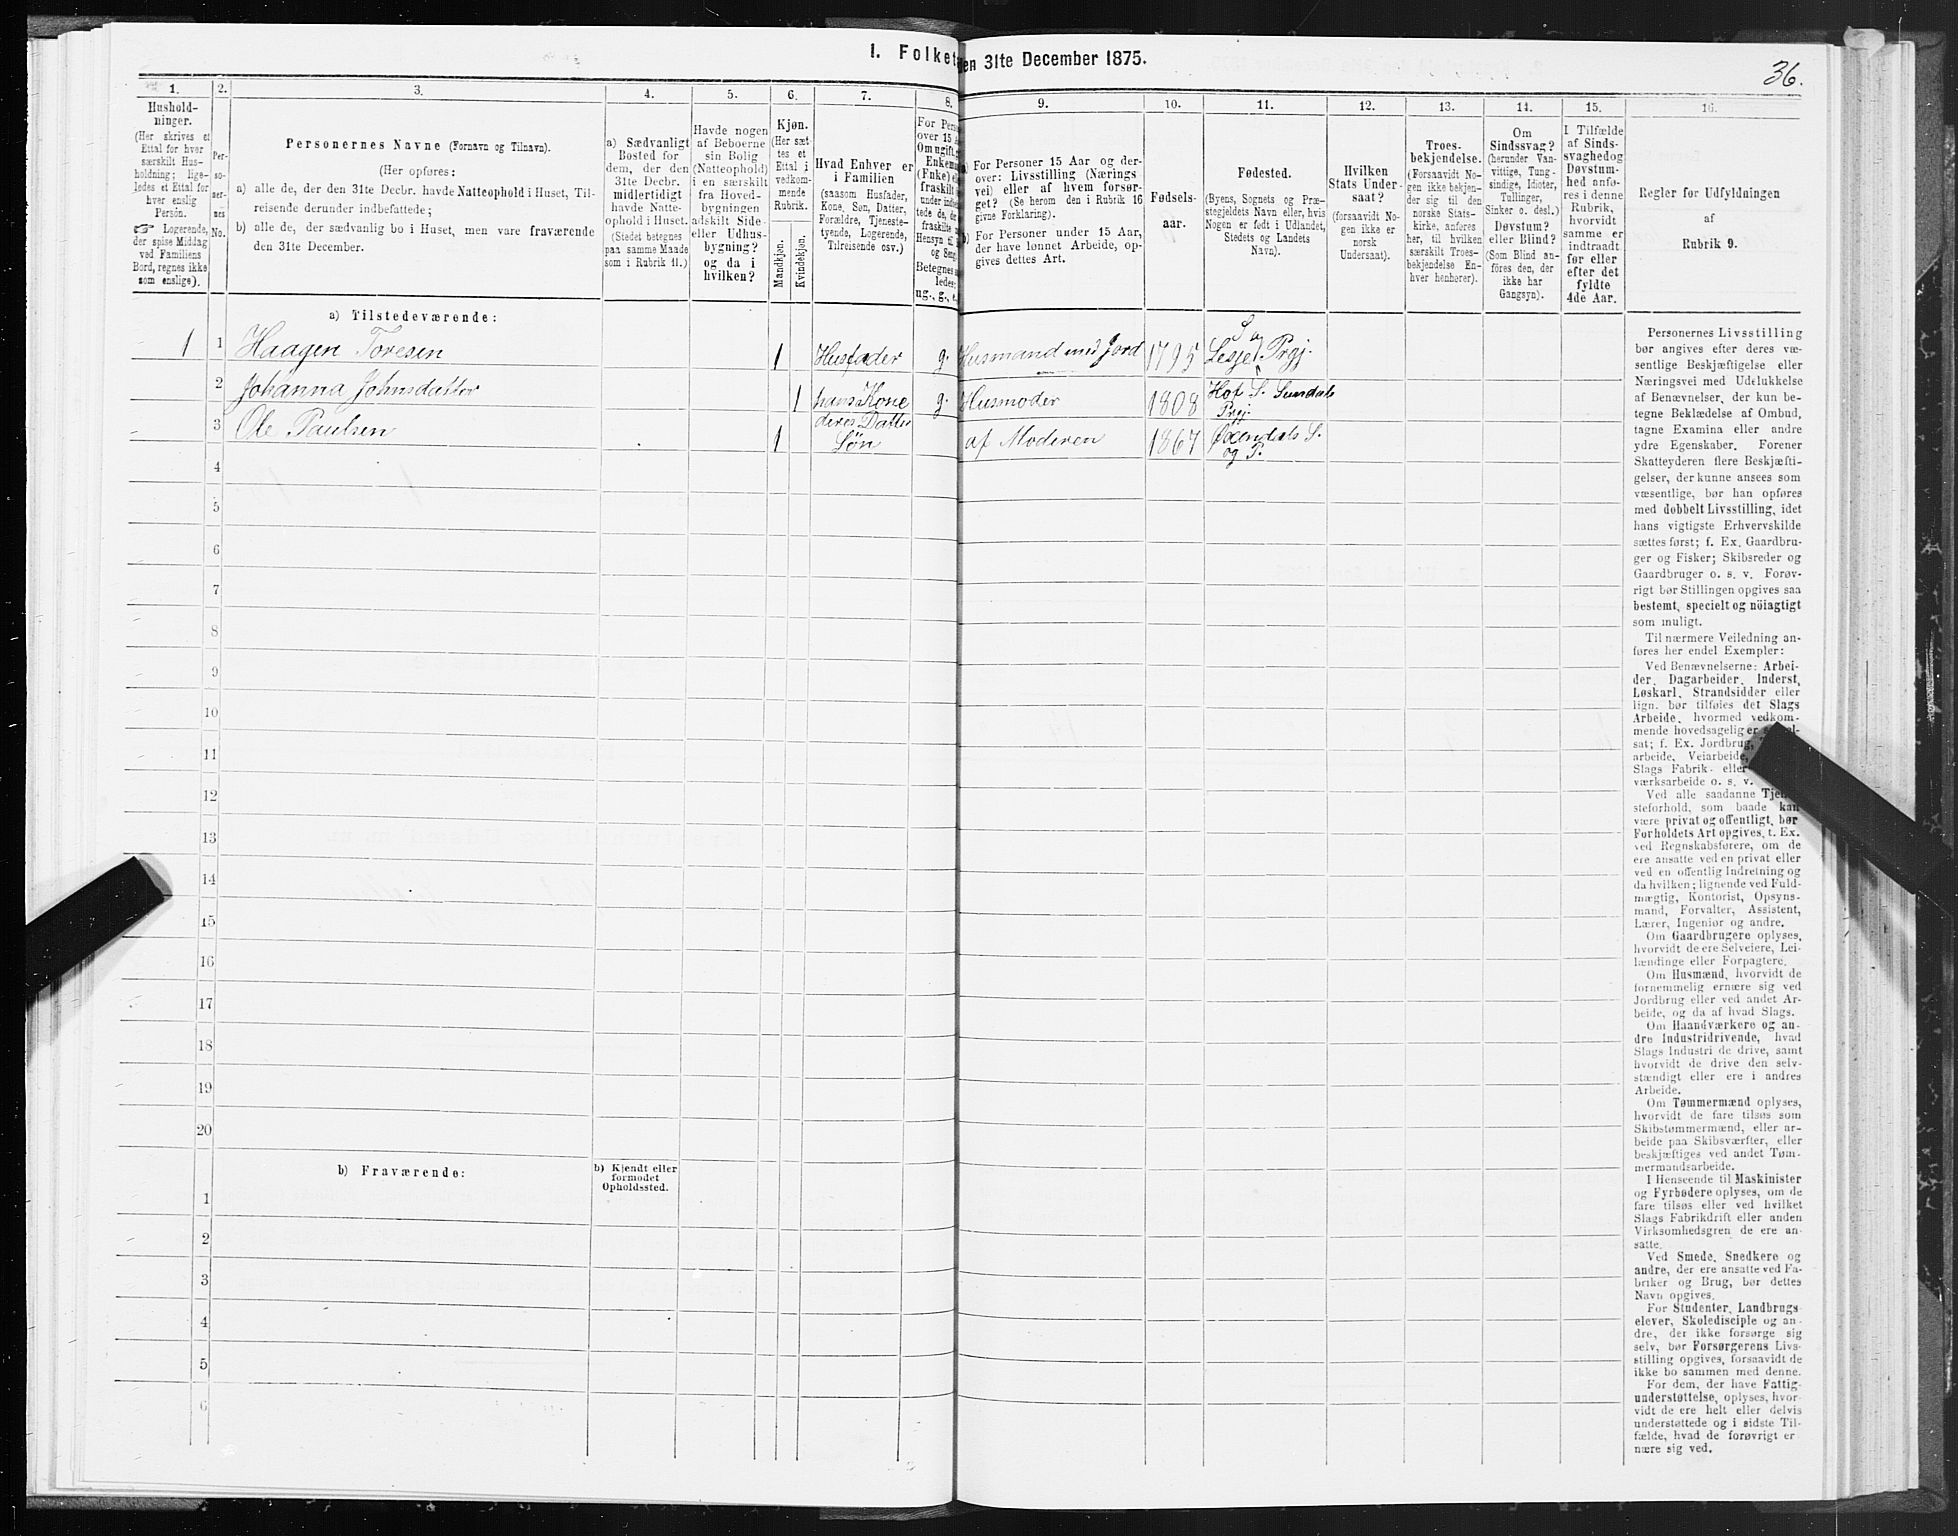 I. Folket
den 31te December 1875.
36.
1.
2.
3.
4.
5.
6.
7.
8.
9.
10.
11.
12.
13.
14.
15.
16.
Hushold-
ninger.
(Her skrives et
Ettal for hver
særskilt Hus-
holdning; lige-
ledes et Ettal for
hver enslig
Person.
☞ Logerende,
der spise Middag
ved Familiens
Bord, regnes ikke
som enslige).
Per-
so-
ner-
nes
No.
Personernes Navne (Fornavn og Tilnavn).
(Her opføres:
a) alle de, der den 31te Decbr. havde Natteophold i Huset, Til-
reisende derunder indbefattede;
b) alle de, der sædvanlig bo i Huset, men vare fraværende
den 31te December.
a) Sædvanligt
Bosted for
dem, der den
31te Decbr.
midlertidigt
havde Natte-
ophold i Huset.
(Stedet betegnes
paa samme Maade
som i Rubrik 11.)
Havde nogen
af Beboerne
sin Bolig
(Natteophold)
i en særskilt
fra Hoved-
bygningen
adskilt Side-
eller Udhus-
bygning?
og da i
hvilken?
Kjøn.
(Her sæt-
tes et
Ettal i
vedkom-
mende
Rubrik.
Mandkjøn.
Kvindekjøn.
Hvad Enhver er
i Familien
(saasom Husfader,
Kone, Søn, Datter,
Forældre, Tjeneste-
tyende, Logerende,
Tilreisende osv.)
For Pers
over 15 A
Om ugift, g
Enkema
(Enke) el
fraskilt
under indbe
tede de, de
fraskilte m
Hensyn til
og Seng.
Betegnes s
ledes:
ug., g., e.,
a) For Personer 15 Aar og der-
over: Livsstilling (Nærings
vei) eller af hvem forsør-
get? (Se herom den i Rubrik 16
givne Forklaring).
b) For Personer under 15 Aar,
der have lønnet Arbeide, op-
gives dettes Art.
Fødsels-
aar.
Fødested.
(Byens, Sognets og Præ-
stegjeldets Navn eller, hvis
Nogen er født i Udlandet,
Stedets og Landets
Navn).
Hvilken
Stats Under-
saat?
(forsaavidt No-
gen ikke er
norsk
Undersaat).
Troes-
bekjendelse.
(Forsaavidt No-
gen ikke bekjen-
der sig til den
norske Stats-
kirke, anføres
her, til hvilken
særskilt Troes-
bekjendelse En-
hver henhører).
Om
Sindssvag?
(herunder Van-
vittige, Tung-
sindige, Idioter,
Tullinger,
Sinker o. desl.)
Døvstum?
eller Blind?
(Som Blind an-
føres den, der
ikke har
Gangsyn).
I Tilfælde
af Sinds-
svaghed og
Døvstum-
hed anfø-
res i denne
Rubrik,
hvorvidt
samme er
indtraadt
før eller
efter det
fyldte
4de Aar.
Regler før Udfyldningen
af
Rubrik 9.
a) Tilstedeværende:
1 1 Haagen Toresen 1 Husfader g. Husmand med Jord 1795 Lesje S. og Prgj.
2 Johanna Johnsdatter 1 hans Kone g. Husmoder 1808 Hof S. Sundals Prgj.
3 Ole Paulsen 1 deres Datter Søn af Moderen 1867 Øxendals S. og P.
4
5
6
7
8
9
10
11
12
13
14
15
16
17
18
19
20
b) Fraværende:
b) Kjendt eller
formodet
Opholdssted.
1
2
3
4
5
6
Personernes Livsstilling
bør angives efter deres væ-
sentlige Beskjæftigelse eller
Næringsvei med Udelukkelse
af Benævnelser, der kun be-
tegne Beklædelse af Ombud,
tagne Examina eller andre
ydre Egenskaber. Forener
Skatteyderen flere Beskjæfti-
gelser, der kunne ansees som
væsentlige, bør han opføres
med dobbelt Livsstilling, idet
hans vigtigste Erhvervskilde
sættes først; f. Ex. Gaardbru-
ger og Fisker; Skibsreder og
Gaardbruger o. s. v. Forøv-
rigt bør Stillingen opgives saa
bestemt, specielt og nöiagtigt
som muligt.
Til nærmere Veiledning an-
føres her endel Exempler:
Ved Benævnelserne: Arbei-
der, Dagarbeider, Inderst,
Løskarl, Strandsidder eller
lign. bør tilføles det Slags
Arbeide, hvormed vedkom-
mende hovedsagelig er
sat; f. Ex. Jordbrug,
arbeide, Veiarbeide,
Slags Fabrik- eller
værksarbeide o. s. v.
Ved alle saadanne
steforhold, som baade kan
være privat og offentligt, bør
Forholdets Art opgives, t. Ex.
ved Regnskabsførere, om de
ere ansatte ved en privat eller
ved en offentlig Indretning og
da hvilken; lignende ved Fuld-
mægtig, Kontorist, Opsyns-
mand, Forvalter, Assistent,
Lærer, Ingeniør og andre.
Om Gaardbrugere oplyses,
hvorvidt de ere Selveiere, Lei-
lændinge eller Forpagtere.
Om Husmænd, hvorvidt de
fornemmelig ernære sig ved
Jordbrug eller ved andet Ar-
beide, og da af hvad Slags.
Om Haandværkere og an-
dre Industridrivende, hvad
Slags Industri de drive, samt
hvorvidt de drive den selv-
stændigt eller ere i andres
Arbeide.
Om Tømmermænd oplyses,
hvorvidt de fare tilsøs som
Skibstømmermænd, eller ar-
beide paa Skibsværfter, eller
beskjæftiges ved andet Tøm-
mermandsarbeide.
I Henseende til Maskinister
og Fyrbødere oplyses, om de
fare tilsøs eller ved hvilket
Slags Fabrikdrift eller anden
Virksomhedsgren de ere an-
satte.
Ved Smede, Snedkere og
andre, der ere ansatte ved Fa-
briker og Brug, bør dettes
Navn opgives.
For Studenter, Landbrugs-
elever, Skoledisciple og an-
dre, der ikke forsørge sig
selv, bør Forsørgerens Livs-
stilling opgives, forsaavidt de
ikke bo sammen med denne.
For dem, der have Fattig-
understøttelse, oplyses, hvor-
vidt de ere helt eller delvis
understøttede og i sidste Til-
fælde, hvad de forøvrigt er
nære sig ved.